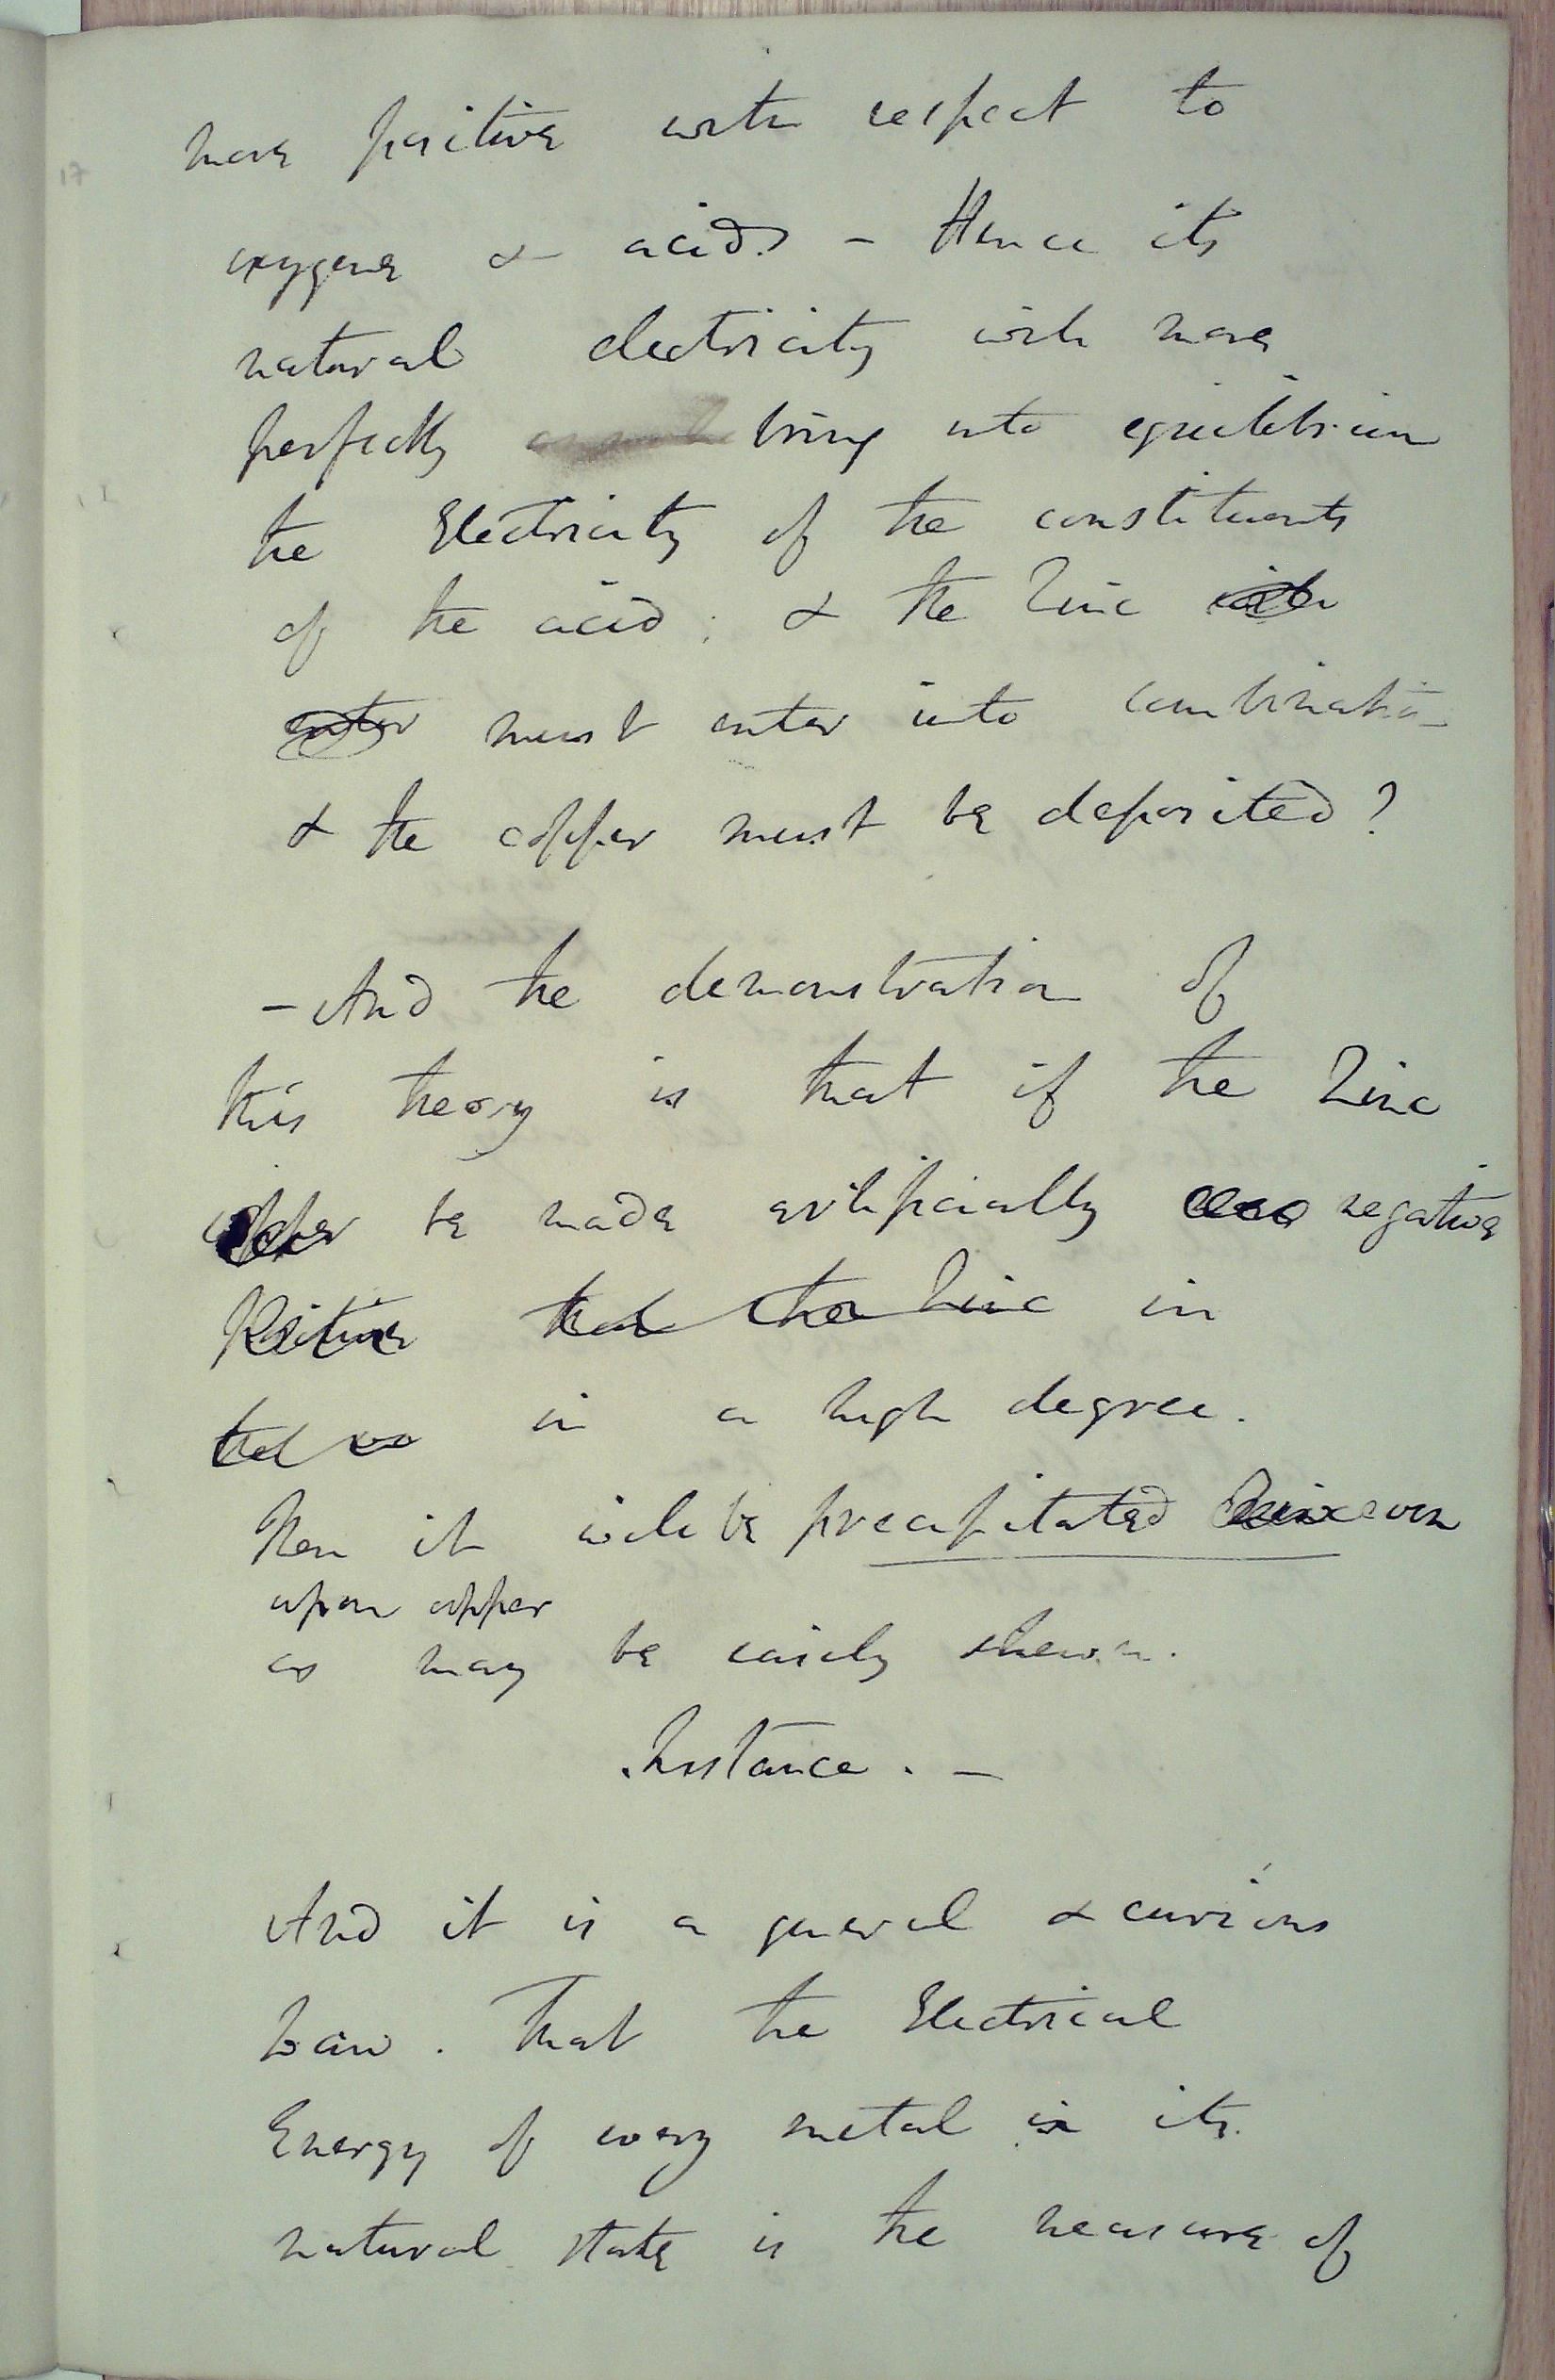 17
more positive with respect to
oxygene & acids - Hence its
natural electricity will more
perfectly bring into equilibrium
the Electricity of the constituents
of the acid; & the Zinc will
enter must enter into combination
& the copper must be deposited?
- And the demonstration of
this theory is that if the Zinc
copper be made artificially negative
Positive than the Zinc in
in a high degree.
then it will be precipitated even
upon copper
as may be easily shewn.
Instance. -
And it is a general & curious
Law. That the Electrical
Energy of every metal in its
natural state is the measure of